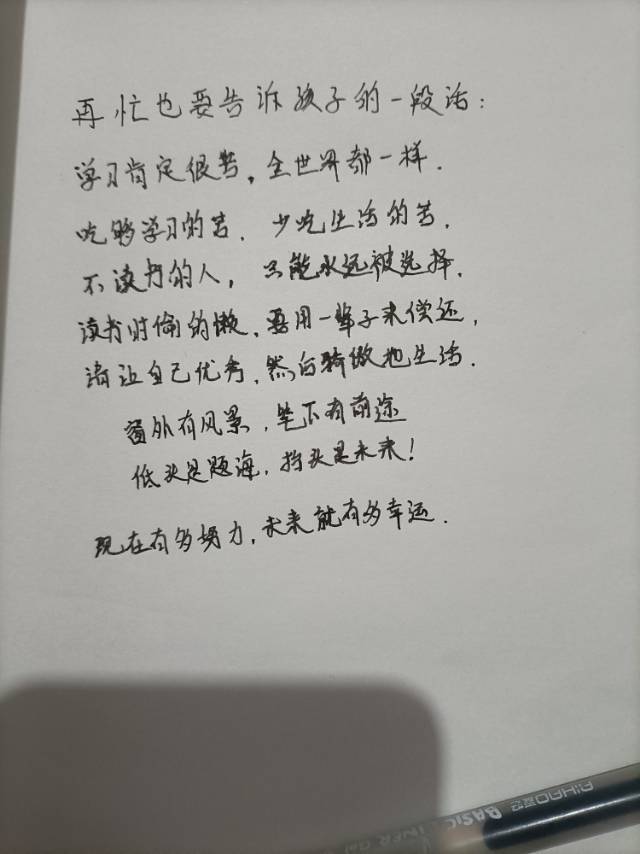 再忙也要告诉孩子的一段话：
学习肯定很苦，全世界都一样．
吃够学习的苦．少吃生活的苦．
不读书的人，只能永远被选择．
读书时偷的懒，要用一辈子来偿还，
请让自己优秀，然后骄傲地生活．
窗外有风景，笔下有前途
低头是题海，抬头是未来！
现在有多努力，未来就有多幸运．
AIHAO
BASIC